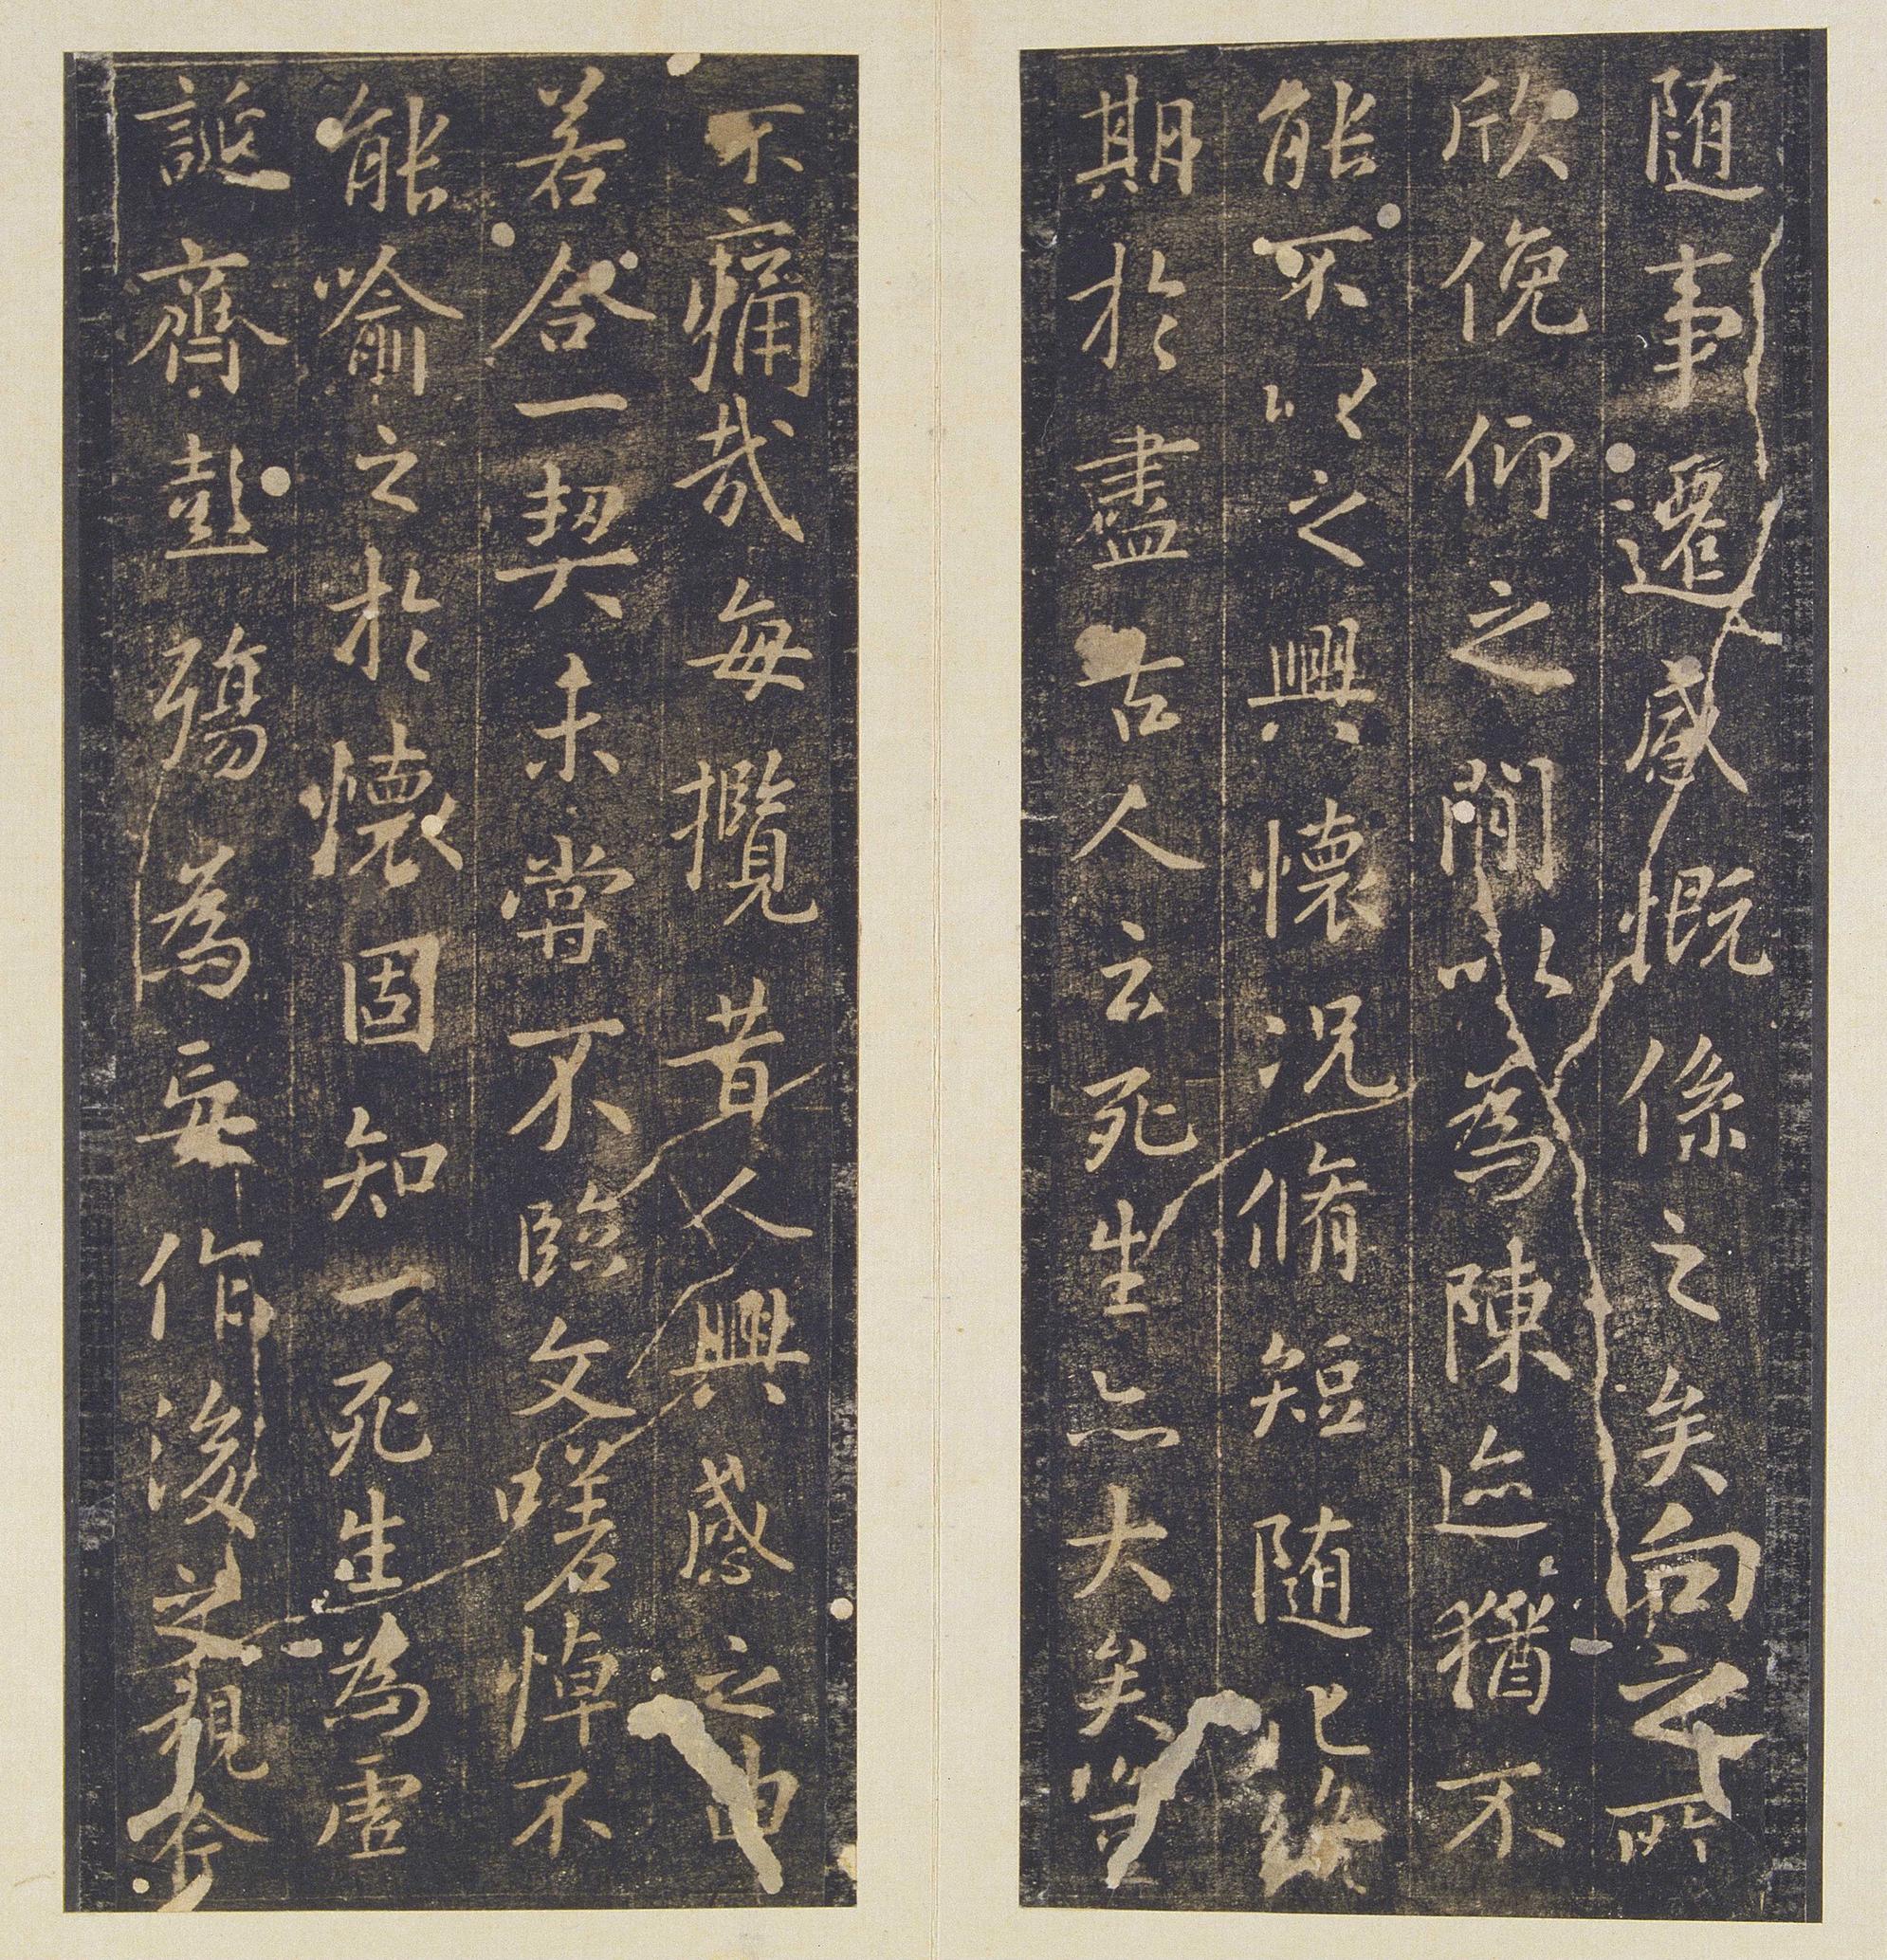 随事遷感慨係之矣向之所
欣俛仰之閒以為陳迹猶不
能不以之興懷況脩短随化終
期於盡古人云死生亦大矣豈
不痛哉每攬昔人興感之由
若合一契未嘗不臨文嗟悼不
能喻之於懷固知一死生為虛
誕齊彭殤為妄作後之視今